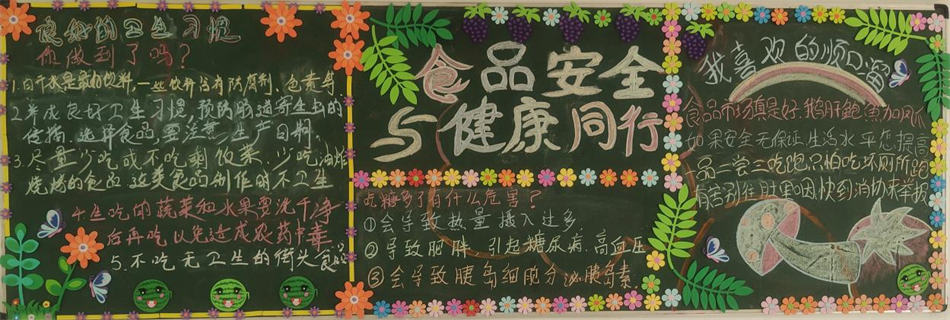 良好的卫生习惯
你做到了吗?
1.白开水是最好饮料,一些饮料含有防腐剂、色素等
2.养成良好卫生习惯,预防肠道寄生虫的
传播.选择食品要注意生产日期.
3.尽量少吃或不吃剩饭菜.少吃油炸
烧烤的食品,这类食品制作时不卫生
4.生吃的蔬菜和水果要洗干净
后再吃以免造成农药中毒
5.不吃无卫生的街头食品
食品安全
与健康同行
吃糖多了有什么危害?
①会导致热量摄入过多
②导致肥胖.引起糖尿病.高血压
③会导致胰岛细胞分泌胰岛素
我喜欢的顺口溜
食品市场真是好,鹅肝鲍鱼加凤爪
如果安全无保证,生活水平怎提高
一品二尝三吃饱,只怕吃坏厕所跑
有苦别往肚里咽,快到消协来举报